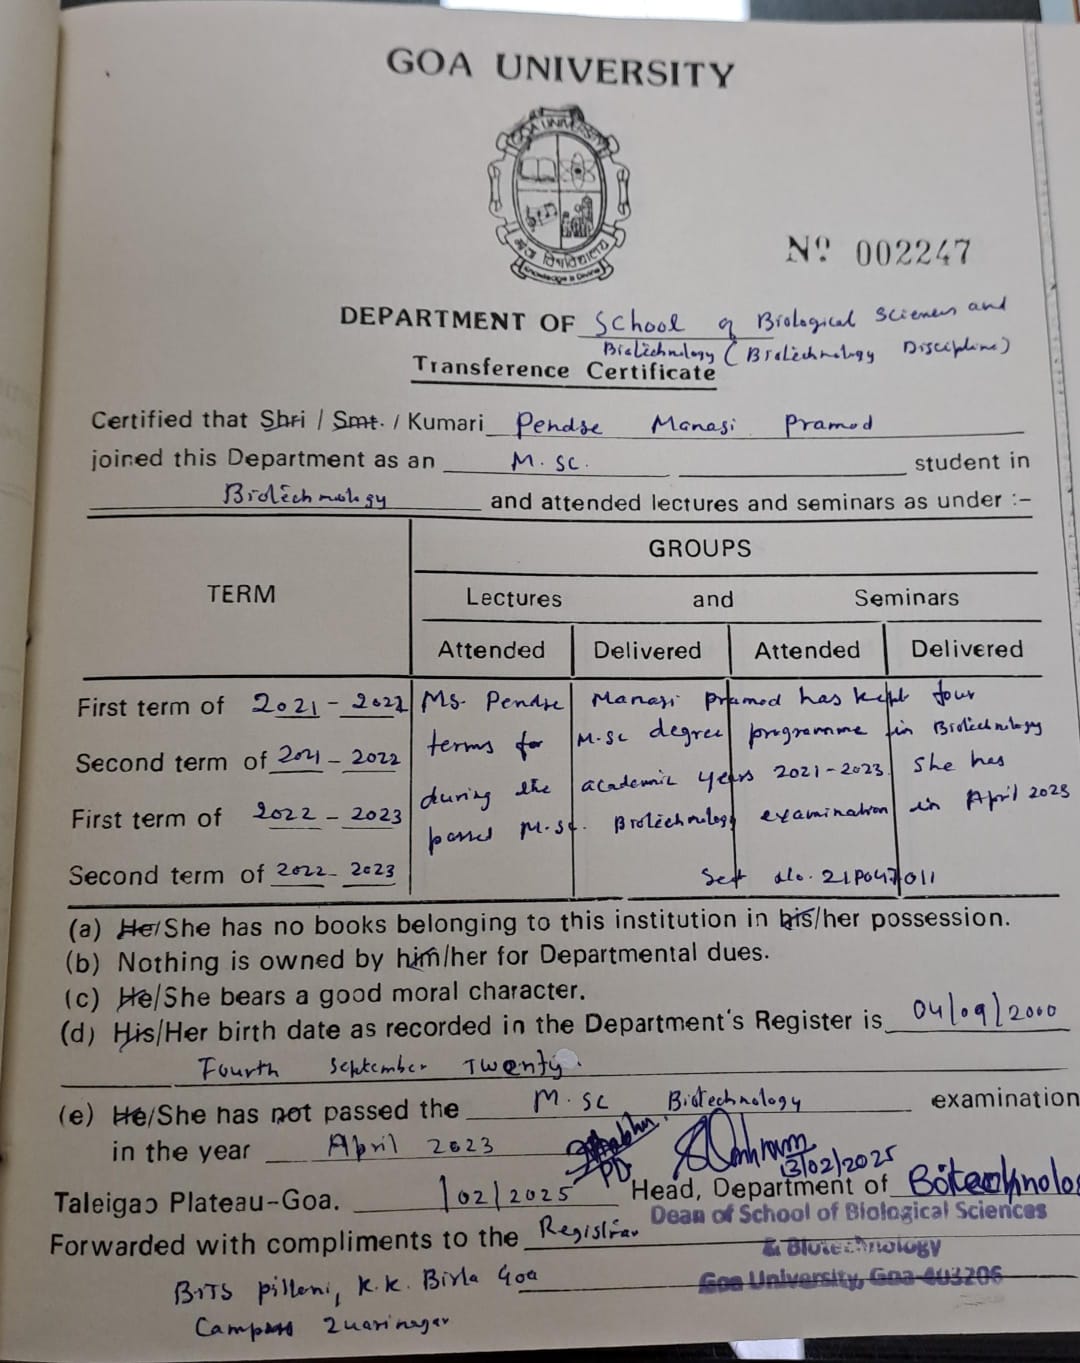 GOA UNIVERSITY
GOA UNIVERSITY
गोंय विश्वविद्यालय
Knowledge is Divine
Nº 002247
DEPARTMENT OF School of Biological Sciences and
Biotechnology (Biotechnology Discipline)
Transference Certificate
Certified that Shri / Smt. / Kumari Pendse Manasi Pramod
joined this Department as an M.Sc. student in
Biotechnology and attended lectures and seminars as under :-
GROUPS
TERM
Lectures and Seminars
Attended Delivered Attended Delivered
First term of 2021 - 2022 Ms. Pendse Manasi Pramod has kept four
Second term of 2021 - 2022 terms for M.Sc degree programme in Biotechnology
during the academic years 2021-2023. She has
First term of 2022 - 2023 passed M.Sc. Biotechnology examination in April 2023
Second term of 2022 - 2023 Seat No. 21P047011
(a) He/She has no books belonging to this institution in his/her possession.
(b) Nothing is owned by him/her for Departmental dues.
(c) He/She bears a good moral character.
(d) His/Her birth date as recorded in the Department's Register is 04/09/2000
Fourth September Twenty.
(e) He/She has not passed the M.Sc Biotechnology examination
in the year April 2023
PD
13/02/2025
Taleigao Plateau-Goa. /02/2025 Head, Department of Biotechnolo
Dean of School of Biological Sciences
Forwarded with compliments to the Registrar
& Biotechnology
BITS pillani, K.K. Birla Goa
Goa University, Goa-403206
Campus Zuarinagar